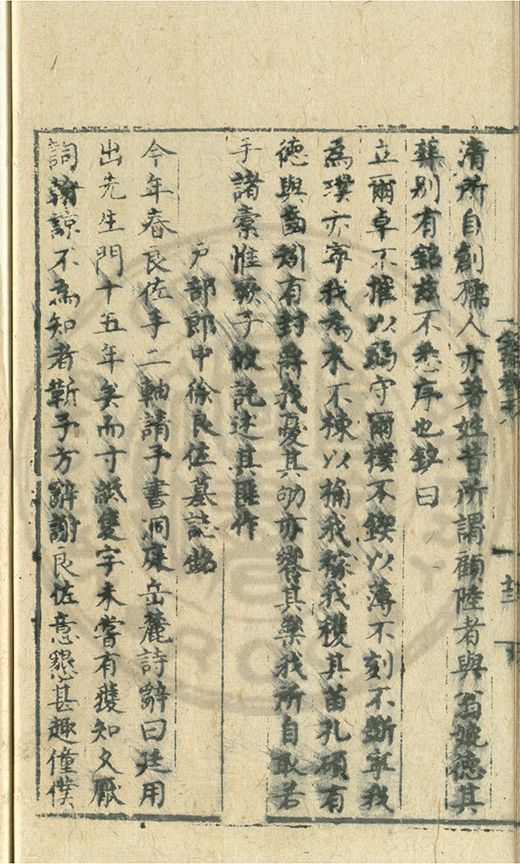 清所自創孺人亦著姓昔所謂顧陸者與翁媲德其
葬別有銘茲不悉序也銘曰
立爾卓不摧以弱守爾樸不鍥以薄不刻不斲寧我
為璞亦寧我為木不棟以桷我稼我穫其苗孔碩有
德與齒矧有封爵我憂其劬亦響其樂我所自取若
手諸橐惟歇子攸託述其匪作
戶部郎中徐良佐墓誌銘
今年春良佐手二軸請予書洞庭岳麓詩辭曰廷用
出先生門十五年矣而寸紙隻字未嘗有獲知文厭
詞翰諒不為知者靳予方辭謝良佐意懇甚趣僮僕